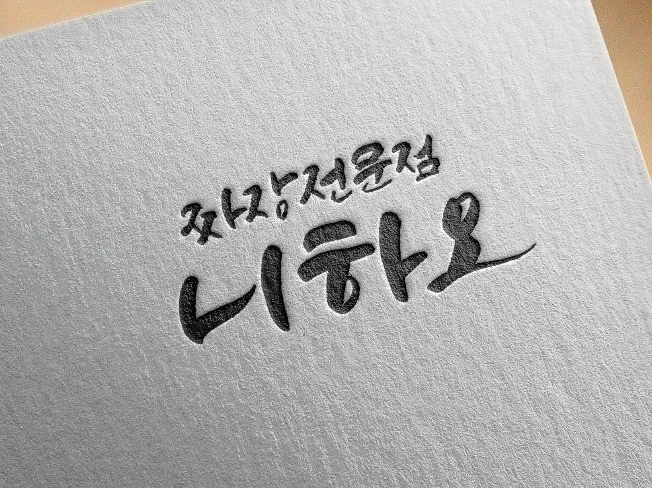 짜장전문점
니하오